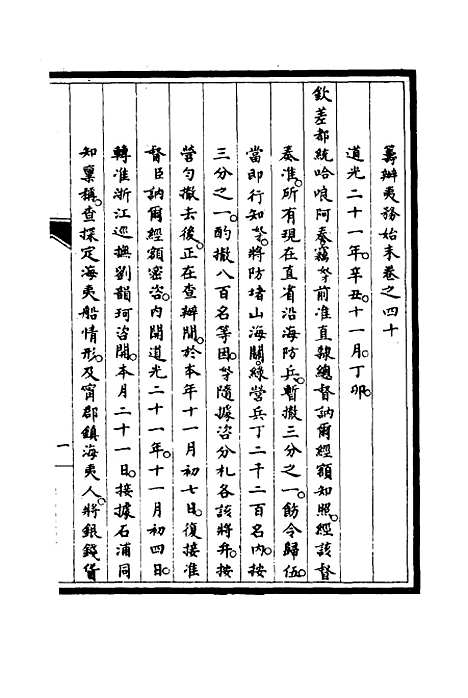 籌辦夷務始末卷之四十
道光二十一年。辛丑。十一月。丁卯。
欽差都統哈哴阿奏竊奴才前准直隸總督訥爾經額知照。經該督
奏准。所有現在直省沿海防兵。暫撤三分之一。飭令歸伍。
當即行知。奴才將防堵山海關。綠營兵丁二千二百名內。按
三分之一。酌撤八百名等因。奴才隨據咨分札各該將弁。按
營勻撤去後。正在查辦間。於本年十一月初七日。復接准
督臣訥爾經額密咨。內開道光二十一年。十一月初四日。
轉准浙江巡撫劉韻珂咨開。本月二十一日。接據石浦同
知稟稱。查探定海夷船情形。及甯郡鎮海夷人。將銀錢貨
一